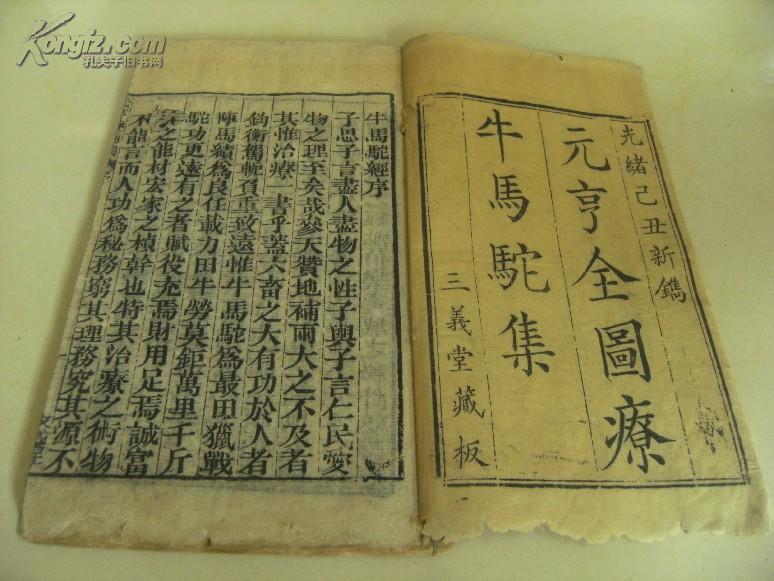 Kongfz.com
孔夫子旧书网
光緒己丑新鐫
元亨全圖療
牛馬駝集
三義堂藏板
牛馬駝經序
子思子言盡人盡物之性子輿子言仁民愛
物之理至矣哉參天贊地補兩大之不及者
其惟治療一書乎蓋六畜之大有功於人者
鈞衡駕軛負重致遠惟牛馬駝爲最田獵戰
陣馬績爲良任載力田牛勞莫鉅萬里千斤
駝功更遠有之者賦役充焉財用足焉誠富
之能材宏家之楨幹也特其治療之術物
不能言而人功爲秘務窮其理務究其源不